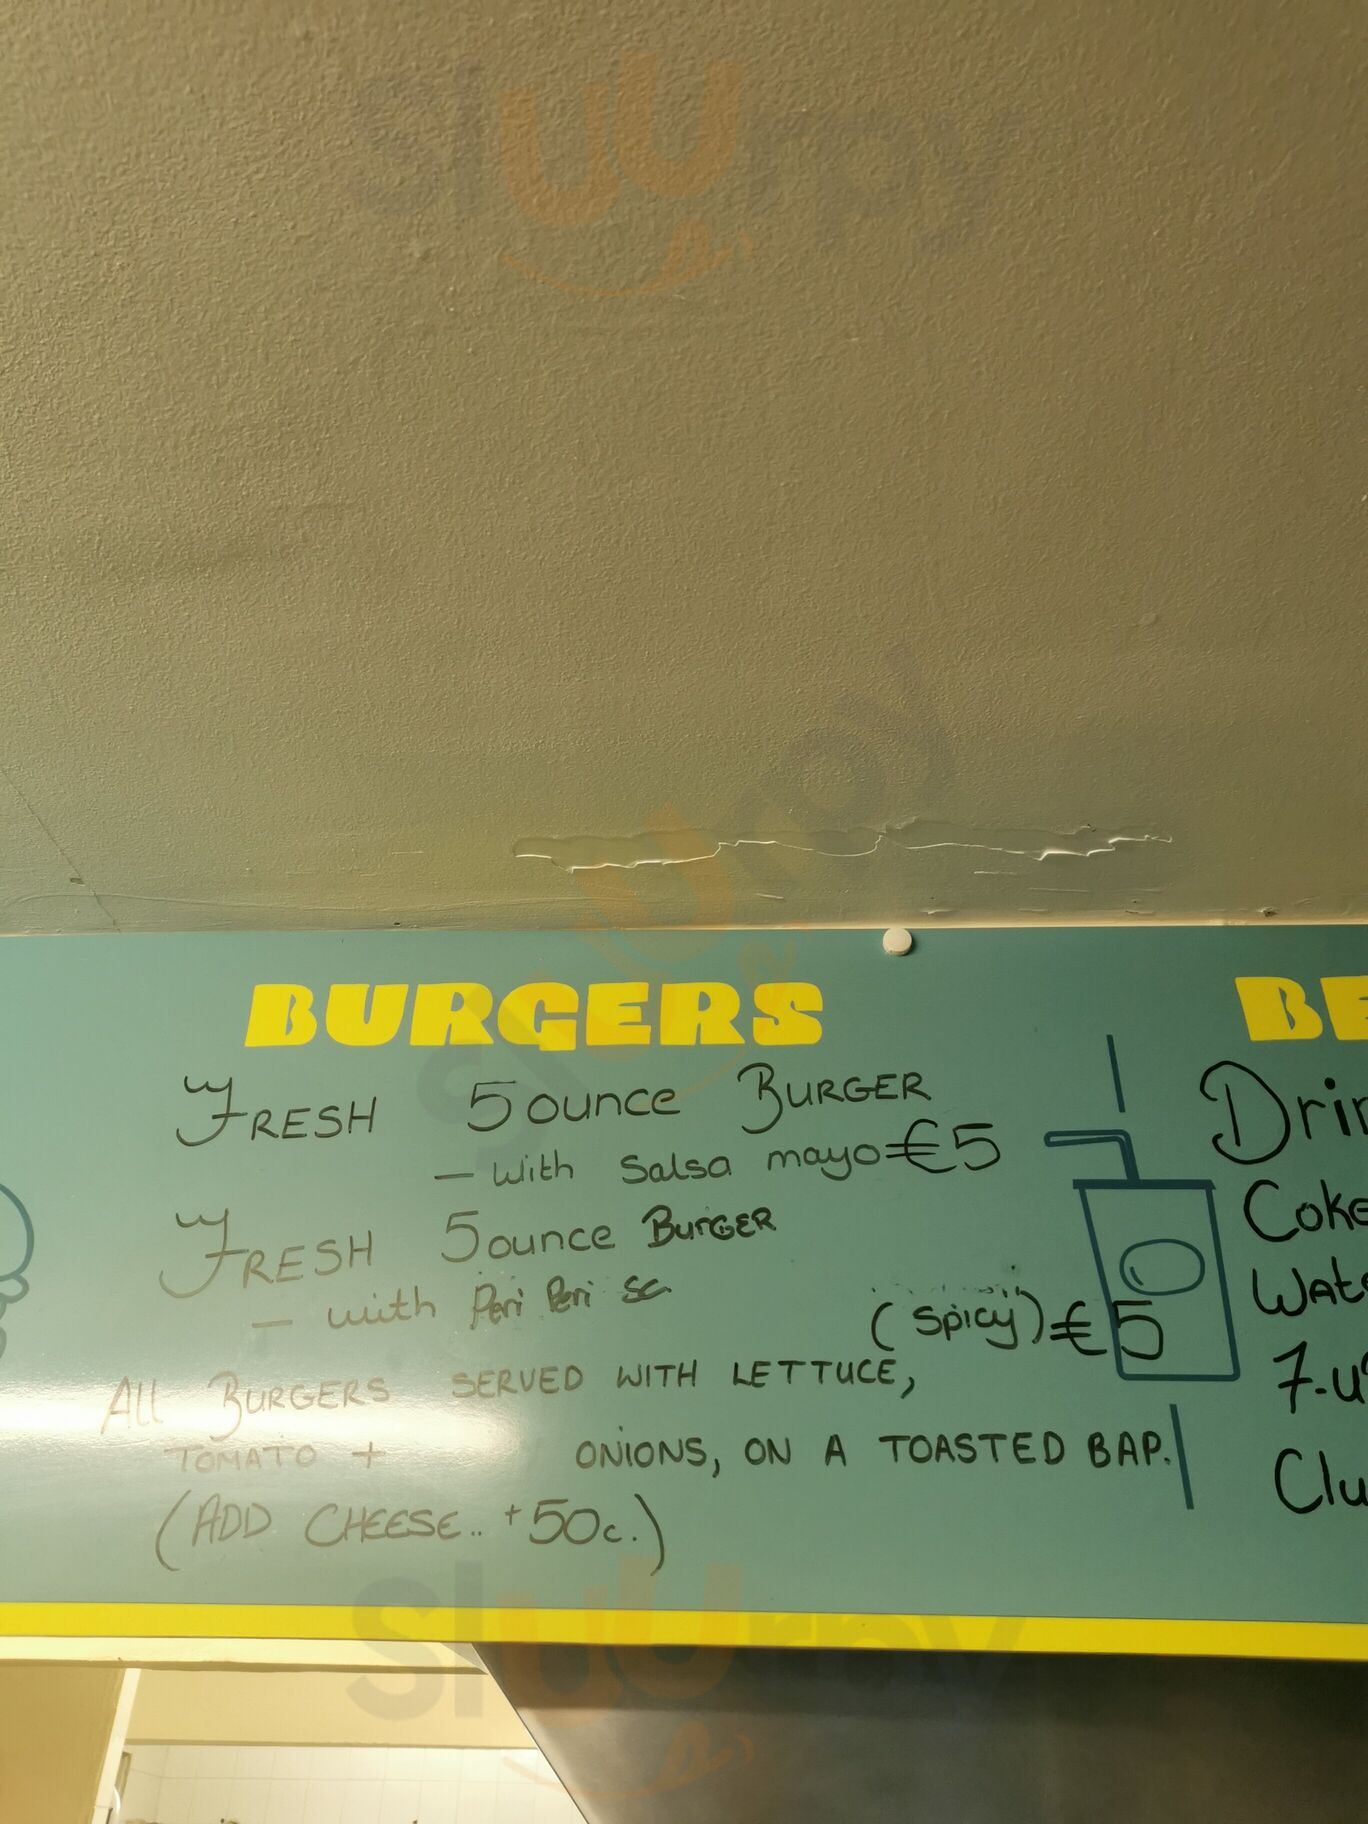 sluurpy
sluurpy
BURGERS
FRESH 5 ounce BURGER
- with salsa mayo €5
FRESH 5 ounce BURGER
- with Peri Peri
(spicy) €5
All BURGERS SERVED WITH LETTUCE,
TOMATO + ONIONS, ON A TOASTED BAP.
(ADD CHEESE.. +50c.)
BE
Drin
Coke
Wate
7-u
Clu
sluurpy